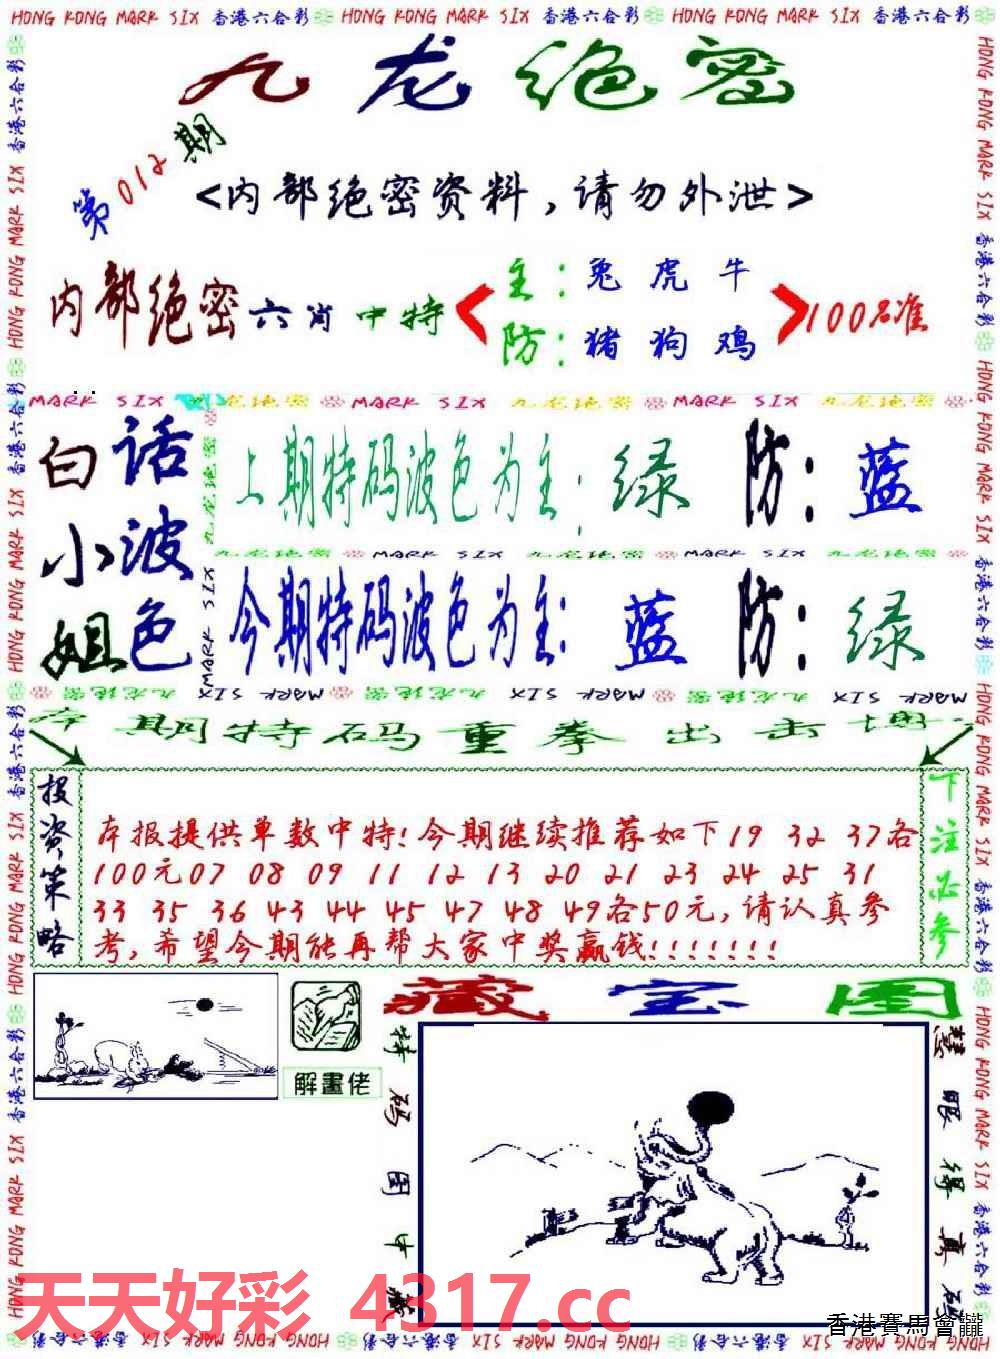 HONG KONG MARK SIX 香港六合彩 HONG KONG MARK SIX 香港六合彩 HONG KONG MARK SIX 香港六合彩
九龙绝密
第012期
<内部绝密资料,请勿外泄>
内部绝密六肖中特
主:兔 虎 牛
防:猪 狗 鸡
100%准
MARK SIX 九龙绝密 MARK SIX 九龙绝密 MARK SIX 九龙绝密
白小姐
话波色
上期特码波色为主:绿 防:蓝
九龙绝密 MARK SIX 九龙绝密 MARK SIX 九龙绝密
今期特码波色为主:蓝 防:绿
本期特码重拳出击
投资策略
本报提供单数中特!今期继续推荐如下19 32 37各
100元07 08 09 11 12 13 20 21 23 24 25 31
33 35 36 43 44 45 47 48 49各50元,请认真参
考,希望今期能再帮大家中奖赢钱!!!!!!!
下注必参
解畫佬
藏宝图
特码图中藏
慧眼得真码
天天好彩 4317.cc
香港賽馬會